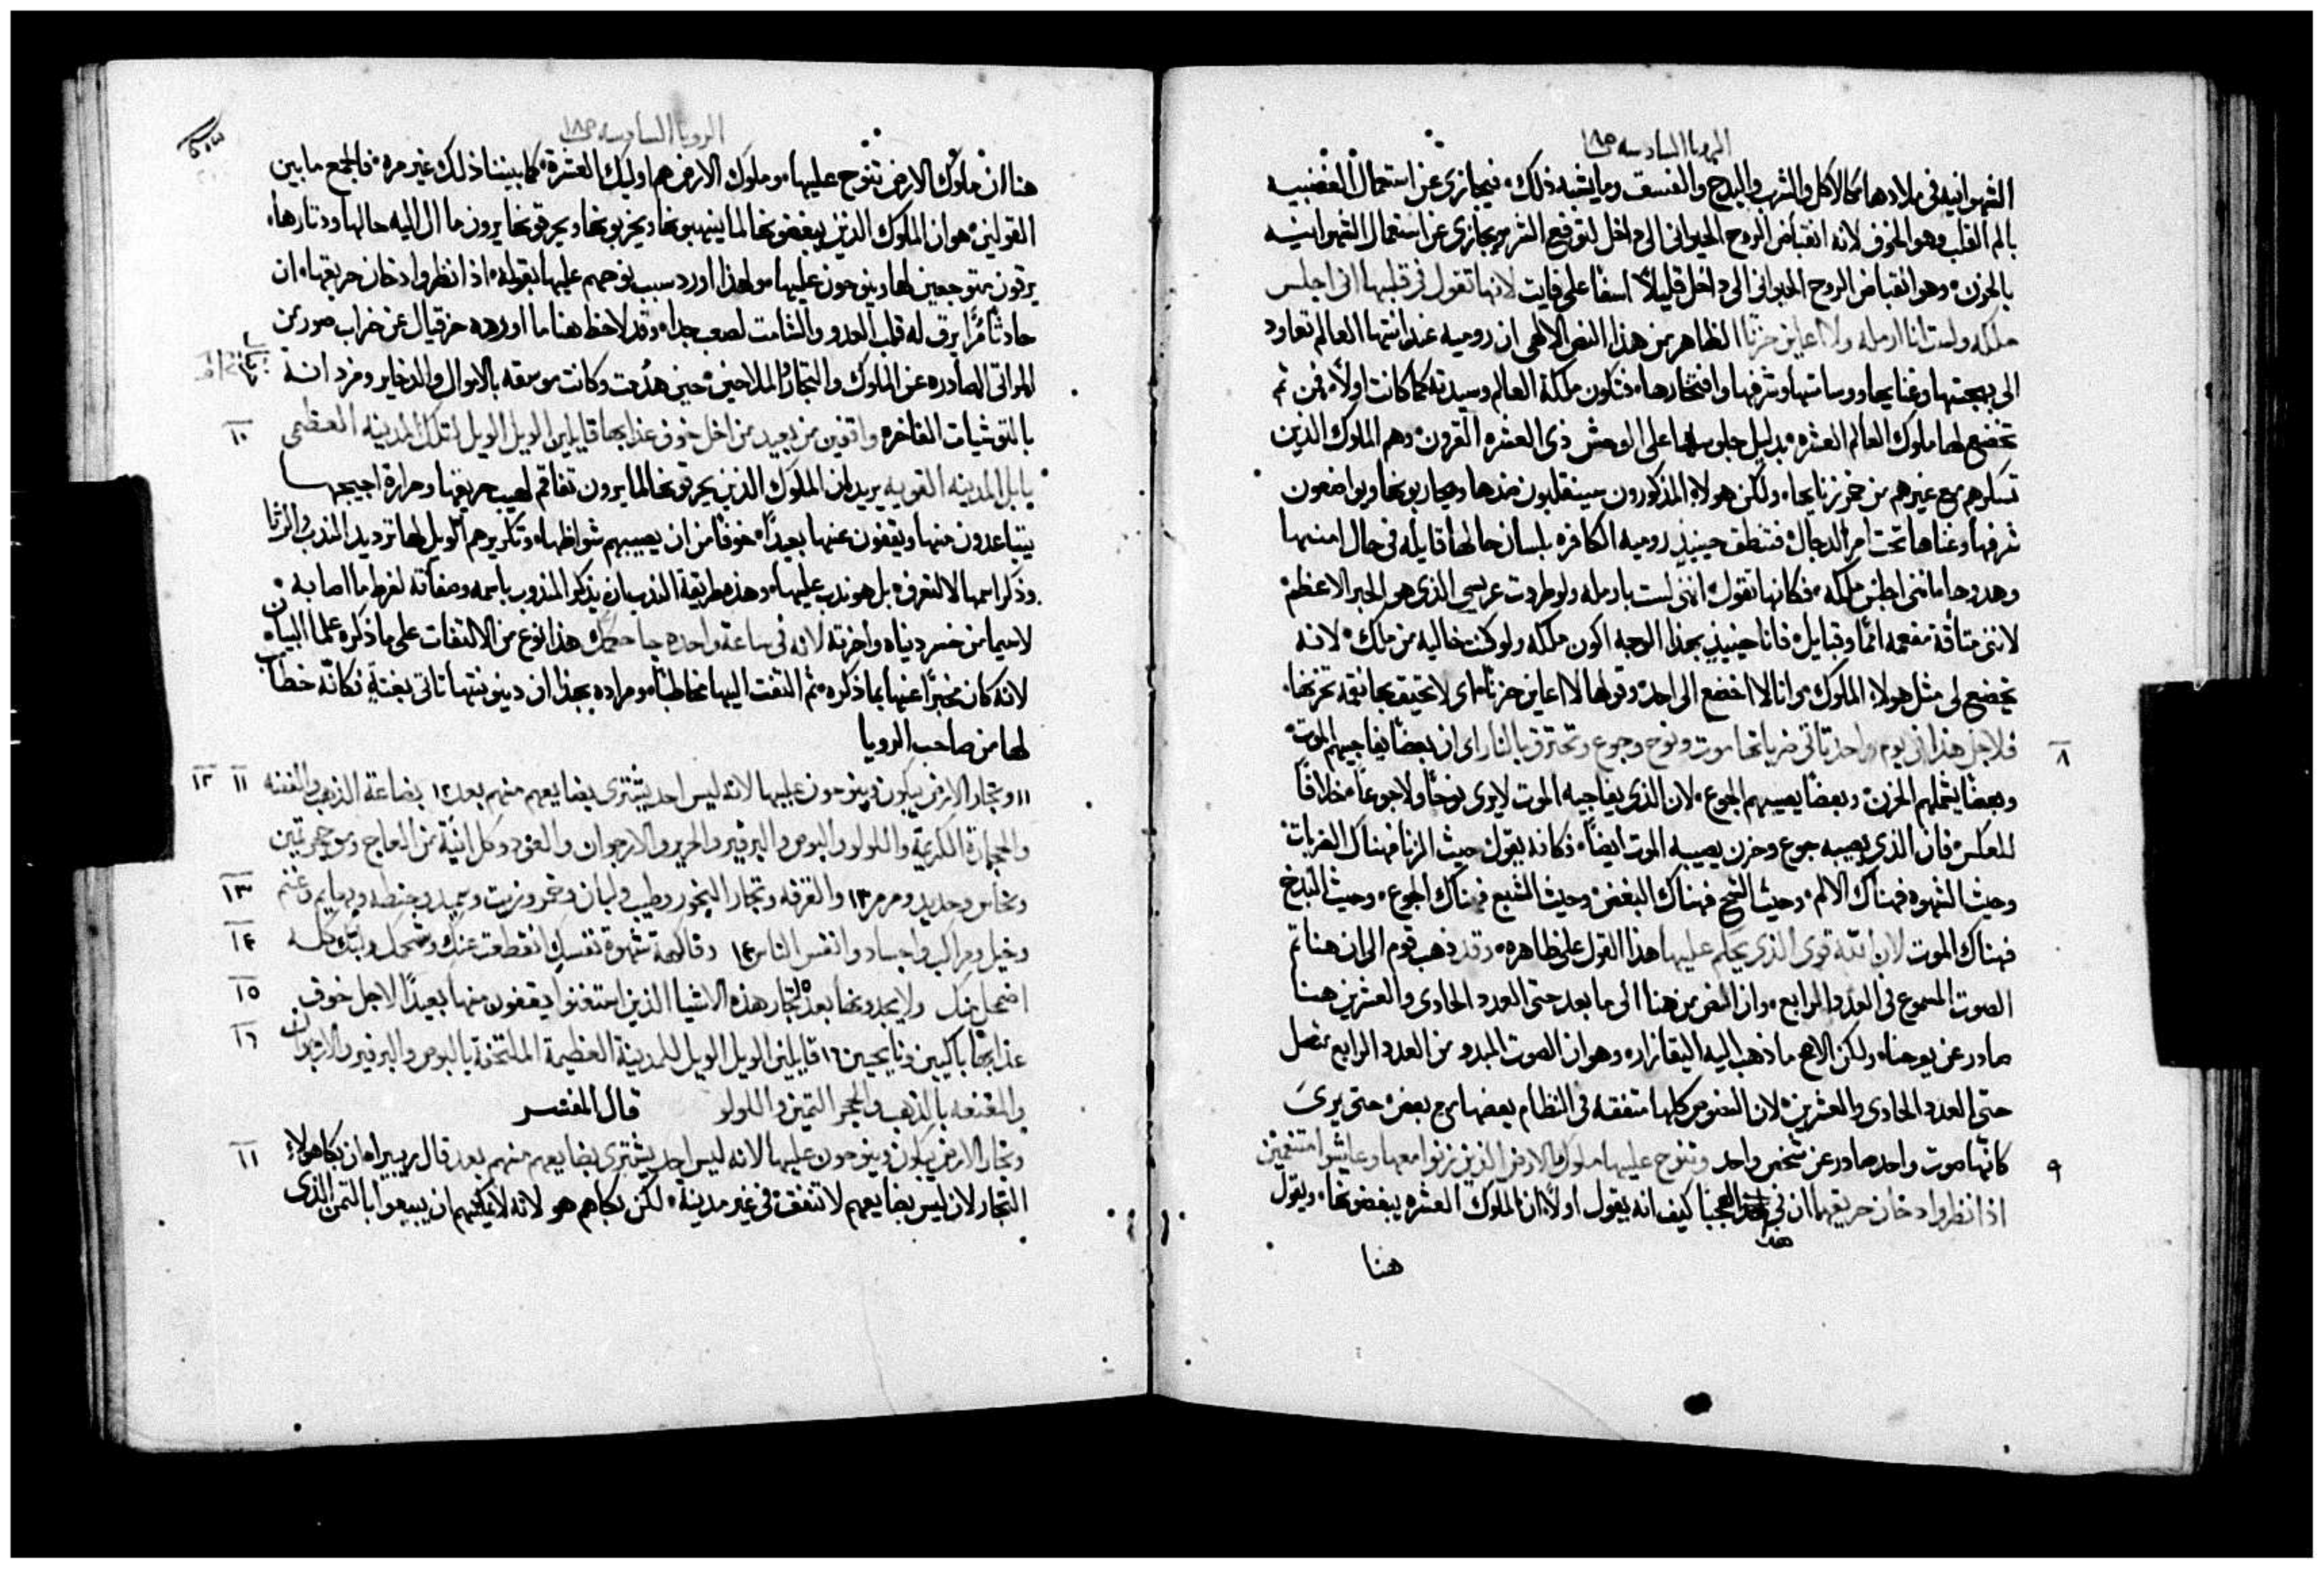 الرويا السادسه ص١٨
الشهوانيه فى ملادها كالاكل والشرب والبدخ والفسق وما يشبه ذلك فيجازى عن استعمال الغضبيه
بالم القلب وهو الخوف لانه انقباض الروح الحيوانى الى داخل لتوقع الشر ويجازى عن استعمال الشهوانيه
بالحزن وهو انقباض الروح الحيوانى الى داخل قليلاً اسفاً على فايت لانها تقول فى قلبها انى اجلس
ملكه ولست انا ارمله ولا اعاين حزنا الظاهر من هذا النص الالهى ان روميه عند انتها العالم تعاود
الى بهجتها وغنايها ووساتها وشرفها وافتخارها فتكون ملكة العالم وسيدته كما كانت اولاً فمن ثم
تخضع لها ملوك العالم العشره بدليل جلوسها على الوحش ذى العشره القرون وهم الملوك الذين
تسكرهم مع غيرهم من خمر زنايها ولكن هولاء المذكورون سينقلبون ضدها ويحاربونها ويواضعون
شرفها وغناها تحت امر الدجال فتنطق حينيذٍ روميه الكافره بلسان حالها قايله فى حال امنها
وهدوها اننى اجلس ملكه فكانها تقول اننى لست بارمله ولو طردت عريسى الذى هو الحبر الاعظم
لاننى متافة مفعمه امماً وقبايل فانا حينيذٍ بهذا الوجه اكون ملكه ولو كنت خاليه من ملك لانه
يخضع لى مثل هولاء الملوك وانا لا اخضع الى احد وقولها لا اعاين حزنا اى لا تحيق بها نقمه تحزنها
فلاجل هذا فى يوم واحد تاتى ضرباتها موت ونوح وجوع وتحترق بالنار اى ان بعضاً يفاجيهم الموت ٨
وبعضاً يشملهم الحزن وبعضاً يصيبهم الجوع لان الذى يفاجيه الموت لا يرى نوحاً ولا جوعاً خلافاً
للعكس فان الذى يصيبه جوع وحزن يصيبه الموت ايضاً فكانه يقول حيث الزنا فهناك الضربات
وحيث الشهوه فهناك الالم وحيث القبح فهناك البغض وحيث الشبع فهناك الجوع وحيث البدخ
فهناك الموت لان الله قوى الذى يحكم عليها هذا القول على ظاهره وقد ذهب قوم الى ان هنا تم
الصوت المسموع فى العدد الرابع وان النص من هنا الى ما بعد حتى العدد الحادى والعشرين هنا
صادر عن يوحنا ولكن الاصح ما ذهب اليه اليقازار وهو ان الصوت المبدو من العدد الرابع متصل
حتى العدد الحادى والعشرين لان النصوص كلها متفقه فى النظام بعضها مع بعض حتى يرى
كانها صوت واحد صادر عن شخص واحد وتنوح عليها ملوك الارض الذين زنوا معها وعاشوا متنعمين ٩
اذا نظروا دخان حريقها ان فى هذا لعجباً كيف انه يقول اولاً ان الملوك العشره يبغضونها ويقول
هنا
الرويا السادسه ص١٨
هنا ان ملوك الارض تنوح عليها وملوك الارض هم اوليك العشرة كما بيننا ذلك غير مره فالجمع ما بين
القولين هو ان الملوك الذين يبغضونها لما ينهبونها ويخربونها ويحرقونها يرون ما ال اليه حالها ودثارها
يرقون متوجعين لها وينوحون عليها ولهذا اورد سبب نوحهم عليها بقوله اذا نظروا دخان حريقها ان
حادثاً مراً يرق له قلب العدو والشامت لصعب جداً وقد لاحظ هنا ما اورده حزقيال عن خراب صور من
المراثى الصادره عن الملوك والتجار والملاحين حين هدمت وكانت موسقه بالاموال والدخاير ومزدانة
بالتوشيات الفاخره واقفين من بعيد من اجل خوف عذابها قايلين الويل الويل لتلك المدينه العظمى ١٠
بابل المدينه القويه يريد ان الملوك الذين يحرقونها لما يرون تفاقم لهيب حريقها وحرارة اجيجها
يتباعدون منها ويقفون عنها بعيداً خوفاً من ان يصيبهم شواظها وتكريرهم الويل لها ترديد الندب والرثا
وذكر اسمها لا لتعرف بل هو ندب عليها وهذه طريقة الندب ان يذكر المندوب باسمه وصفاته لفرط ما اصابه
لاسيما من خسر دنياه واخرته لانه فى ساعة واحده جا حكمك هذا نوع من الالتفات على ما ذكره علما البيان
لانه كان مخبراً عنها بما ذكره ثم التفت اليها مخاطباً ومراده بهذا ان دينونتها تاتى بغتةً فكانه خطاب
لها من صاحب الرويا
١١ وتجار الارض يبكون وينوحون عليها لانه ليس احد يشترى بضايعهم منهم بعد ١٢ بضاعة الذهب والفضه ١١ ١٢
والحجارة الكريمة واللولو والبوص والبرفير والحرير والارجوان والعود وكل انية من العاج ومن حجر ثمين
ونحاس وحديد ومرمر ١٣ والقرفه وتجار البخور وطيب ولبان وخمر وزيت وسميد وحنطه وبهايم وغنم ١٣
وخيل ومراكب واجساد وانفس الناس ١٤ وفاكهة شهوة نفسك انقطعت عنك وشحمك ولبك كله ١٤
اضمحل منك ولا يجدونها بعد تجار هذه الاشيا الذين استغنوا يقفون منها بعيداً لاجل خوف ١٥
عذابها باكيين ونايحين ١٦ قايلين الويل الويل للمدينة العظيمة الملتحفة بالبوص والبرفير والارجوان ١٦
والمقنعه بالذهب والحجر الثمين واللولو قال المفسر
وتجار الارض يبكون وينوحون عليها لانه ليس احد يشترى بضايعهم منهم بعد قال ريبيرا ان بكا هولاء ١١
التجار لان ليس بضايعهم لا تنفق فى غير مدينة لكن بكاهم هو لانه لا يمكنهم ان يبيعوا بالثمن الذى